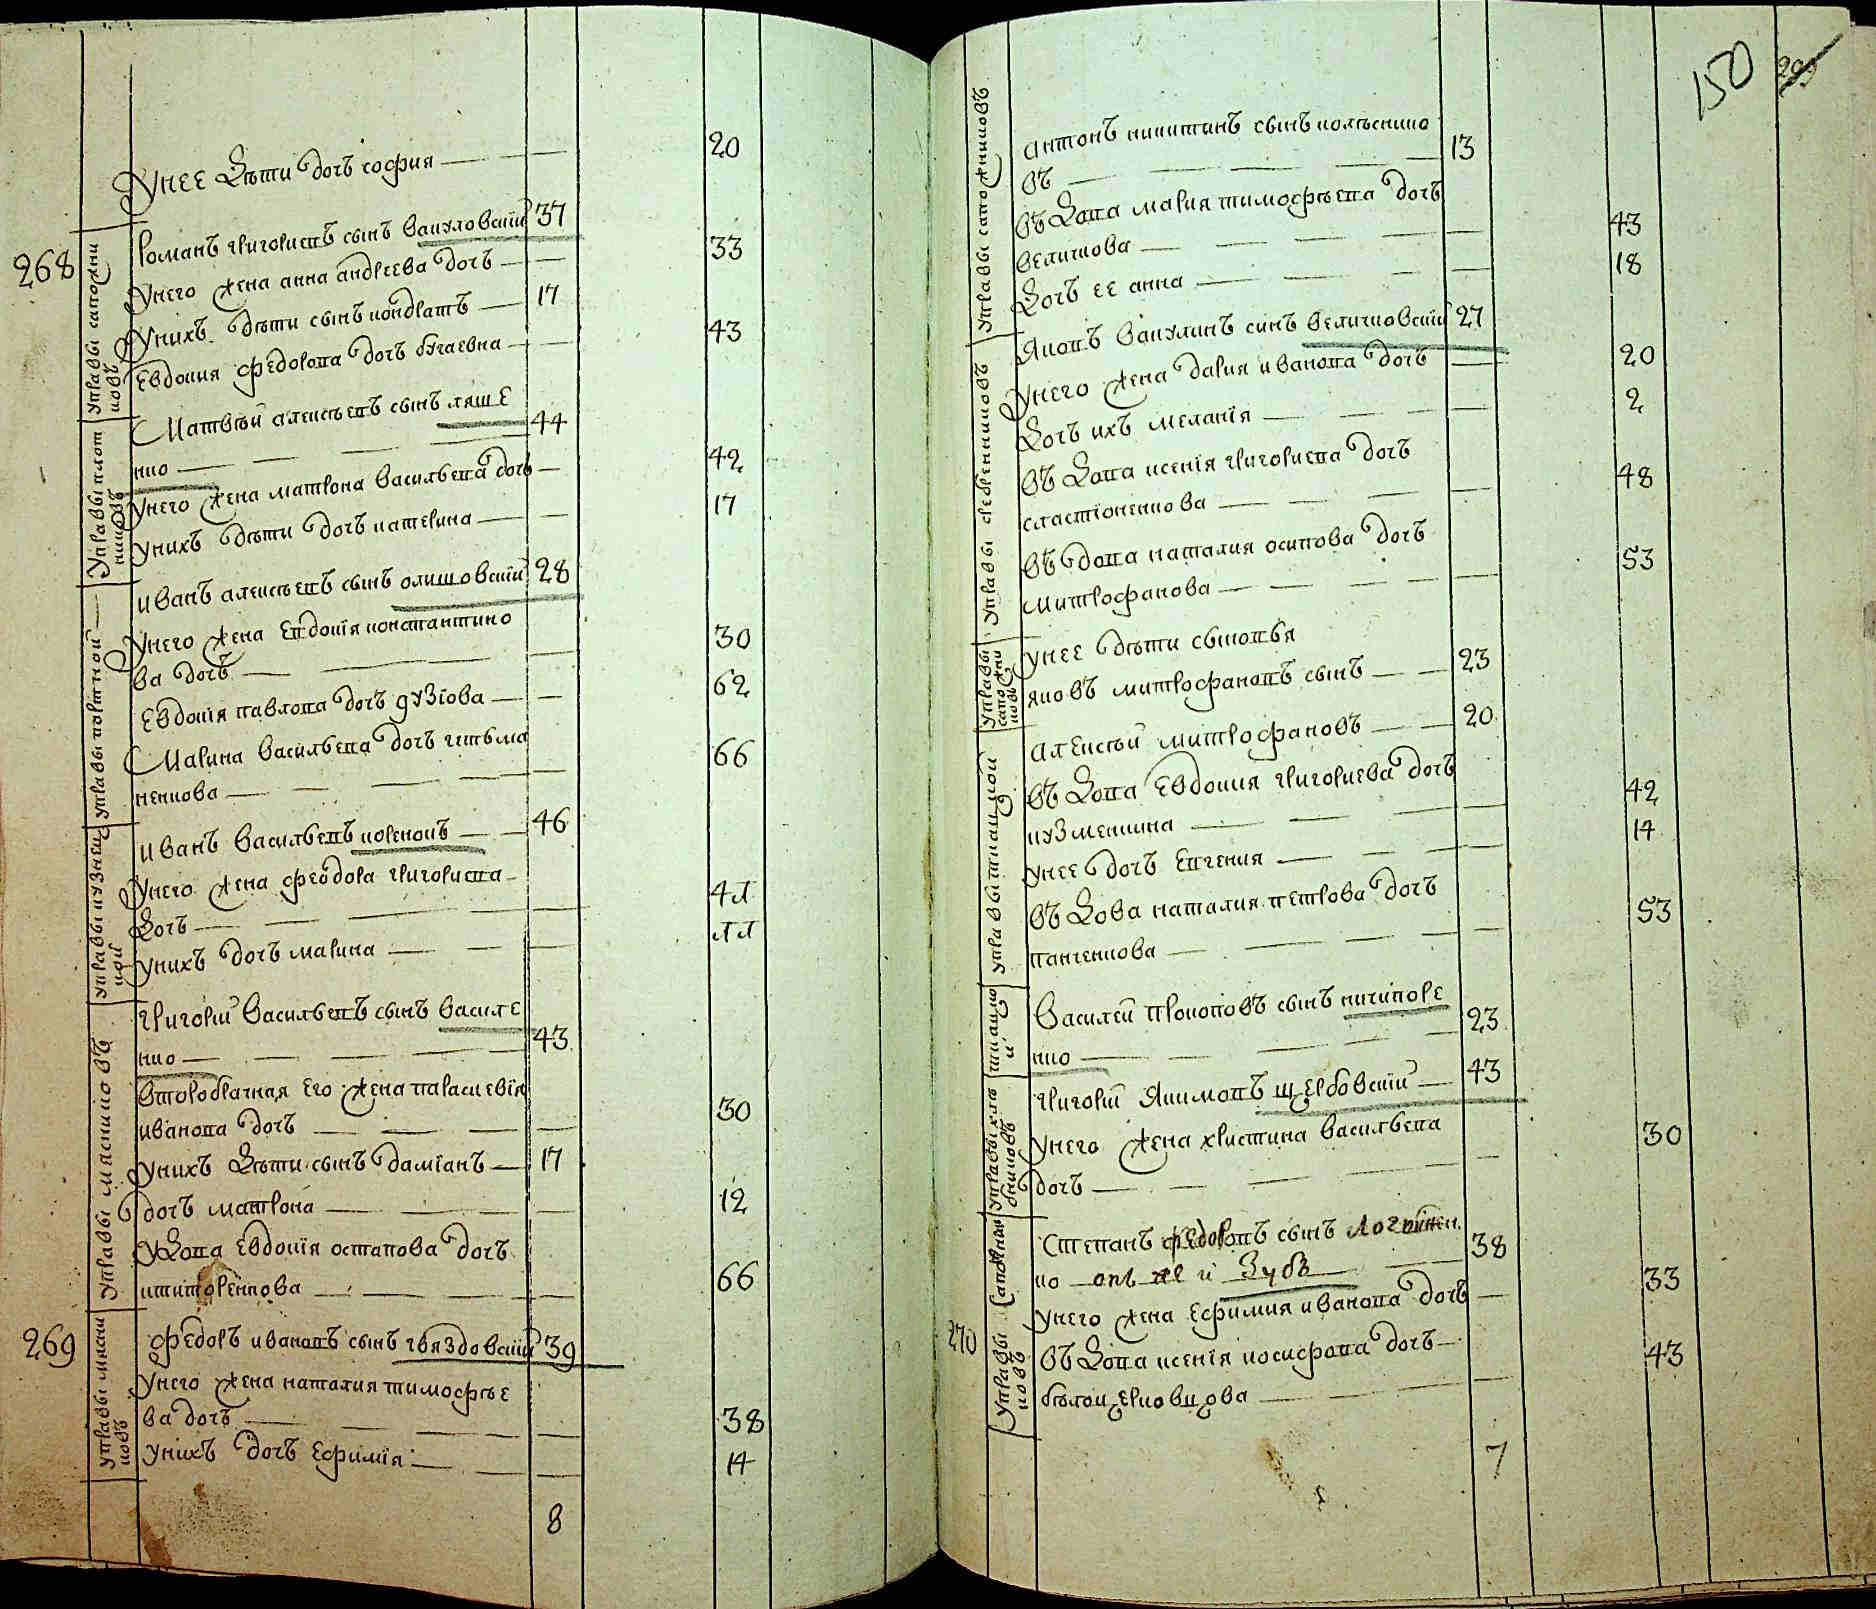 Унее Дѣти дочъ софия 20
268
Управы сапожни
ковъ
Романъ григориевъ сынъ вакуловскiй 37
Унего жена анна андреева дочъ 33
Унихъ дѣти сынъ кондратъ 17
Евдокия федорова дочъ бугаевна 43
Управы плот
никовъ
Матвѣй алексѣевъ сынъ ляше
нко 44
Унего жена матрона васильева дочъ 42
Унихъ дѣти дочъ катерина 17
Управы портной
иванъ алексѣевъ сынъ олишовскiй 28
Унего жена Евдокiя константино
ва дочъ 30
Евдокiя павлова дочъ 62
Марина васильева дочъ
ненкова 66
Управы кузнец
кой
иванъ васильевъ коренокъ 46
Унего жена феодора григориева
Дочъ 41
Унихъ дочъ марина 11
Управы мяснико въ
григорiй васильевъ сынъ василе
нко 43
второбрачная его жена параскевiя
иванова дочъ 30
Унихъ Дѣти сынъ дамiанъ 17
дочъ матрона 12
уДова Евдокiя остапова дочъ
66
269
Управы мясни
ковъ
федоръ ивановъ сынъ гвяздовскiй 39
Унего жена наталия тимофѣе
ва дочъ 38
Унихъ дочъ Ефимiя 14
8
150
Управы сапожниковъ
антонъ никитинъ сынъ колѣснико
въ 13
въДова мария тимофѣева дочъ
величкова 43
Дочъ ее анна 18
Управы сребенниковъ
Яковъ вакулинъ синъ величковскiй 27
Унего жена дария иванова дочъ 20
Дочъ ихъ меланiя 2
въДова ксенiя григориева дочъ
сластiоненкова 48
въдова наталия осипова дочъ
митрофанова 53
Управы
сапожни
ковъ
унее дѣти сыновья
яковъ митрофановъ сынъ 23
Управы ткацкой
алексѣй митрофановъ 20
въДова Евдокия григориева дочъ
кузменкина 42
унее дочъ Евгения 14
въДова наталия петрова дочъ
панченкова 53
ткацко
й
Василей прокоповъ сынъ ничипоре
нко 23
Управы хлѣ
бниковъ
григорiй Якимовъ щербовскiй 43
Унего жена христина васильева
дочъ 30
270
Управы Сапожни
ковъ
Степанъ федоровъ сынъ
ко онъ же и Зубъ 38
унего жена ефимия иванова дочъ 33
въДова ксенiя иосифова дочъ
43
7